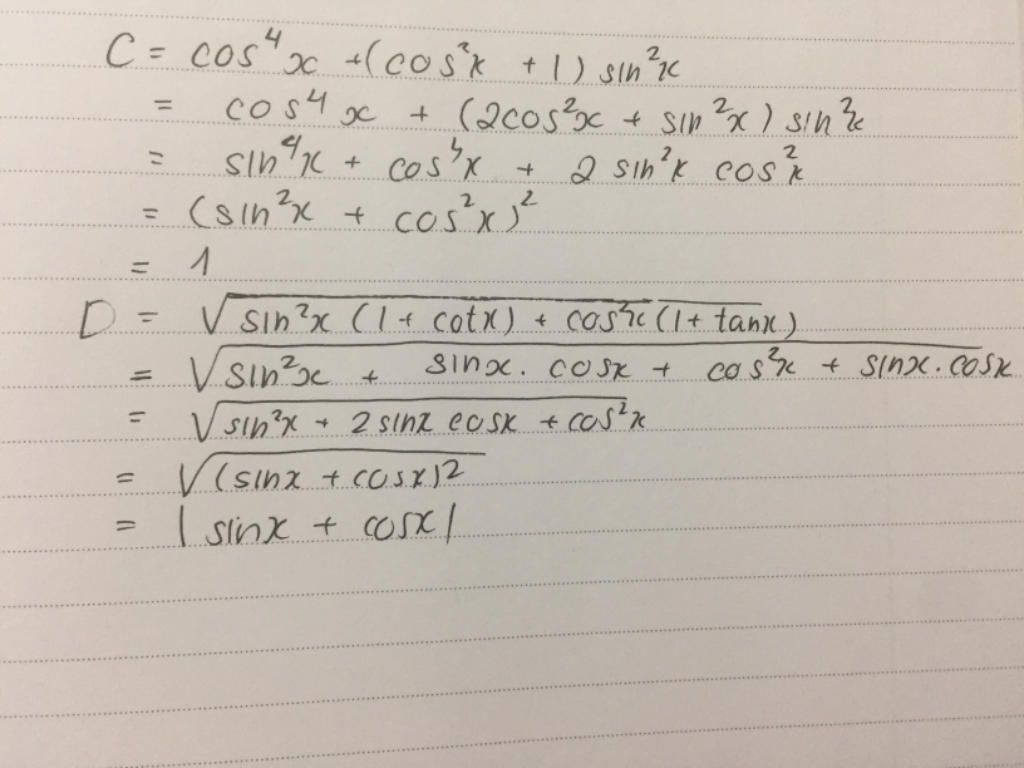 C = cos⁴x + (cos²x + 1) sin²x
= cos⁴x + (2cos²x + sin²x) sin²x
= sin⁴x + cos⁴x + 2 sin²x cos²x
= (sin²x + cos²x)²
= 1
D = √(sin²x (1 + cotx) + cos²x (1 + tanx))
= √(sin²x + sinx . cosx + cos²x + sinx . cosx)
= √(sin²x + 2 sinx cosx + cos²x)
= √((sinx + cosx)²)
= | sinx + cosx |